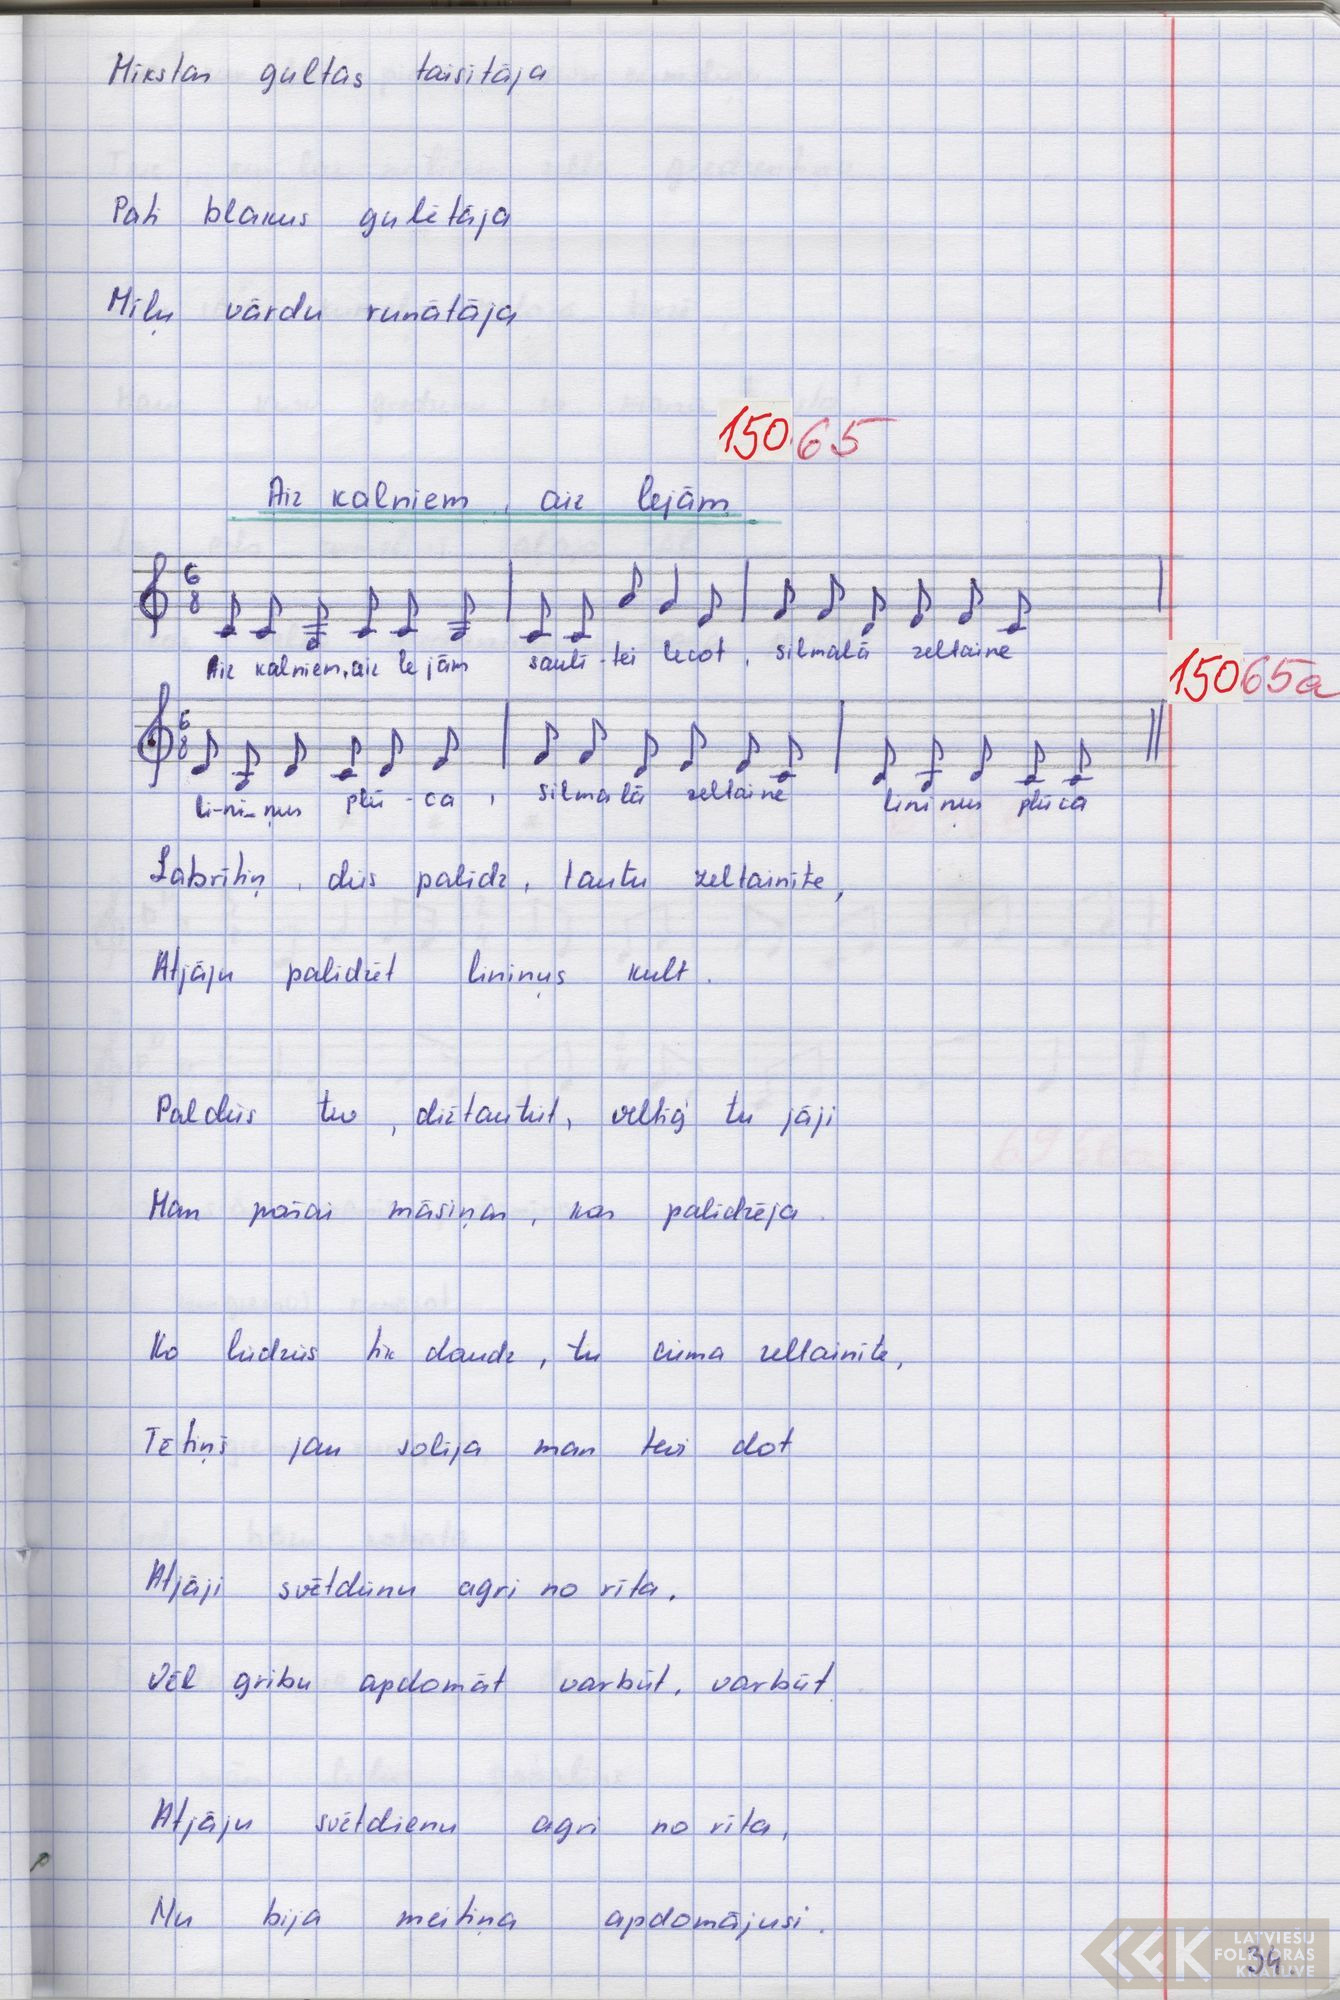 Mīkstas gultas taisītāja
Pati blakus gulētāja
Mīļu vārdu runātāja
15065
Aiz kalniem, aiz lejām
6 8
Aiz kalniem, aiz lejām saulī-tei lecot, silmalā zeltaine
15065a
6 8
li-ni-ņus plū-ca, silmalā zeltaine liniņus plūca
Labrītiņ, dies palīdz, tautu zeltainīte,
Atjāju palīdzēt liniņus kult.
Paldies tev, dižtautiet, veltīg tu jāji
Man pašai māsiņas, kas palīdzēja.
Ko liedzies tik daudz, tu ciema zeltainīte,
Tētiņš jau solīja man tevi dot
Atjāji svētdienu agri no rīta.
Vēl gribu apdomāt varbūt, varbūt.
Atjāju svētdienu agri no rīta,
Nu bija meitiņa apdomājusi.
LATVIEŠU
FOLKLORAS
KRĀTUVE
34.